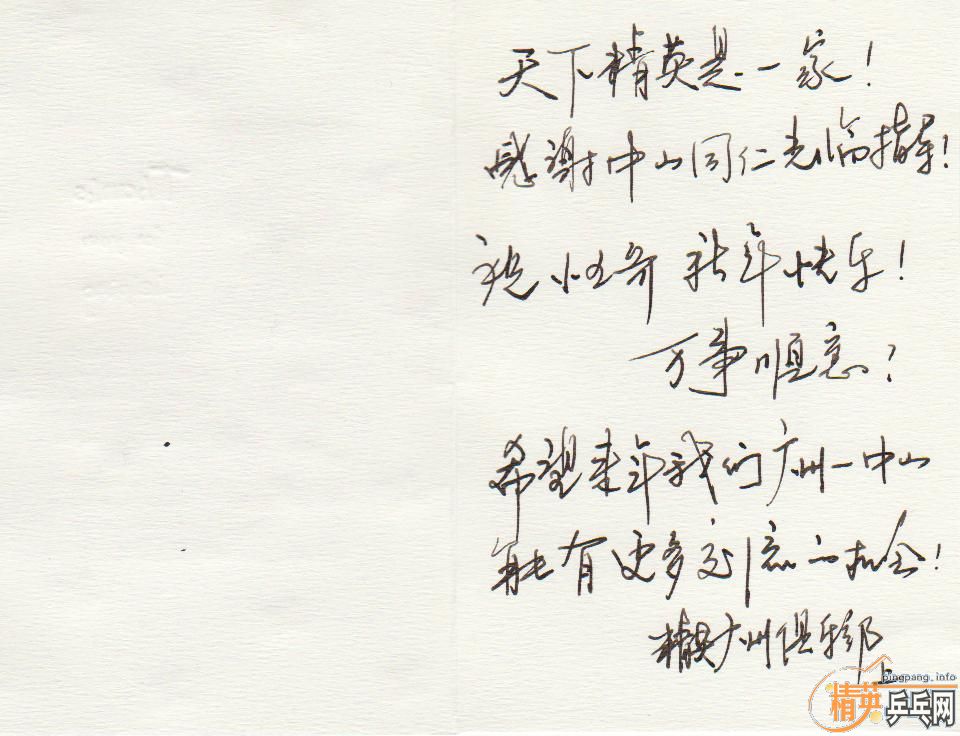 天下精英是一家！
感谢中山同仁光临指导！
祝小五哥新年快乐！
万事顺意！
希望来年我们广州—中山
能有更多交流的机会！
精英广州俱乐部
上
pingpang.info
精英乒乓网